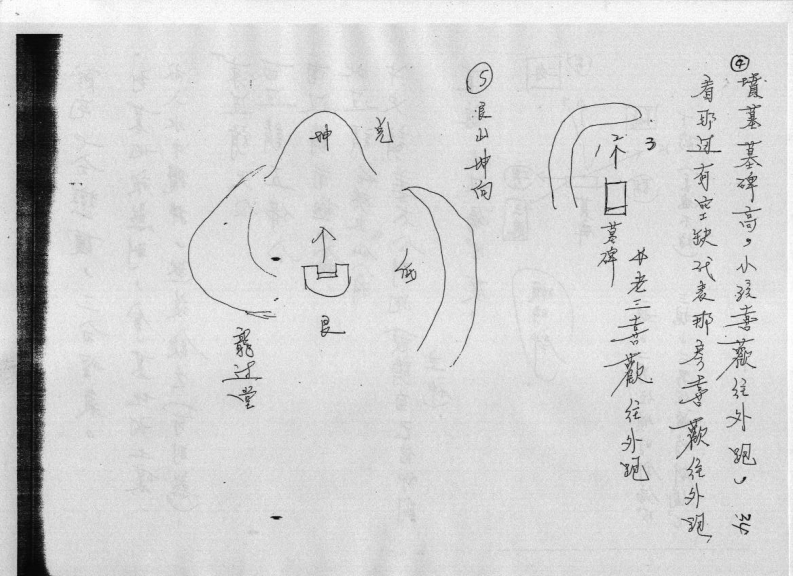 ④墳墓墓碑高，小孩喜歡往外跑，
看那邊有空缺代表那房喜歡往外跑
1 2 3
墓碑
老三喜歡往外跑
⑤艮山坤向
坤
兌
低
艮
龍过堂